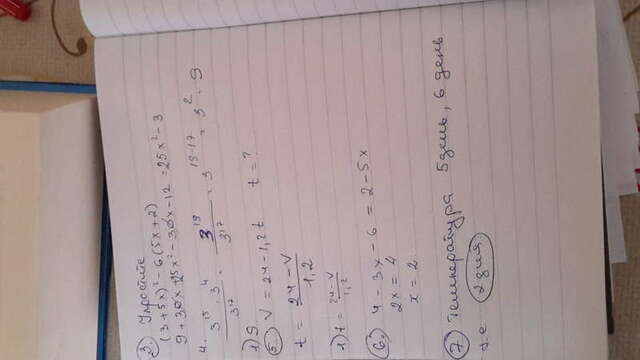 3. Упростите
(3+5x)² - 6(5x+2)
9+30x+25x²-30x-12 = 25x²-3
4. 3¹⁵·3⁴/3¹⁷ = 3¹⁹/3¹⁷ = 3¹⁹⁻¹⁷ = 3² = 9
1) 9
5. V = 24-1,2t t = ?
t = 24-V/1,2
1) t = 24-V/1,2
6. 4-3x-6 = 2-5x
2x = 4
x = 2
7. Температура 5 день, 6 день
т.е 2 дня.